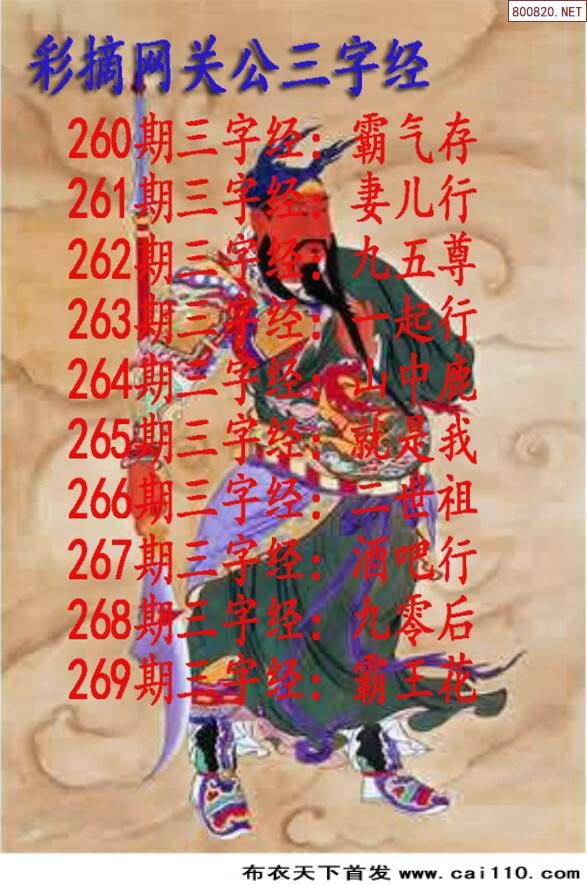 800820.NET
彩摘网关公三字经
260期三字经：霸气存
261期三字经：妻儿行
262期三字经：九五尊
263期三字经：一起行
264期三字经：山中鹿
265期三字经：就是我
266期三字经：二世祖
267期三字经：酒吧行
268期三字经：九零后
269期三字经：霸王花
布衣天下首发 www.cai110.com